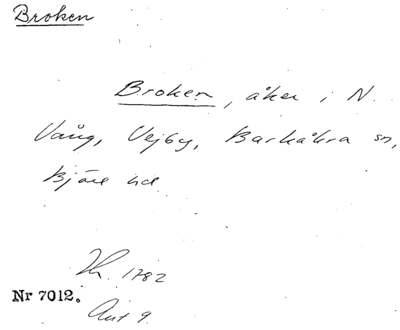 Broken
Broken, åker i N.
Vång, Vejby, Barkåkra sn,
Bjäre hd
1782
Nr 7012.
Akt 9.